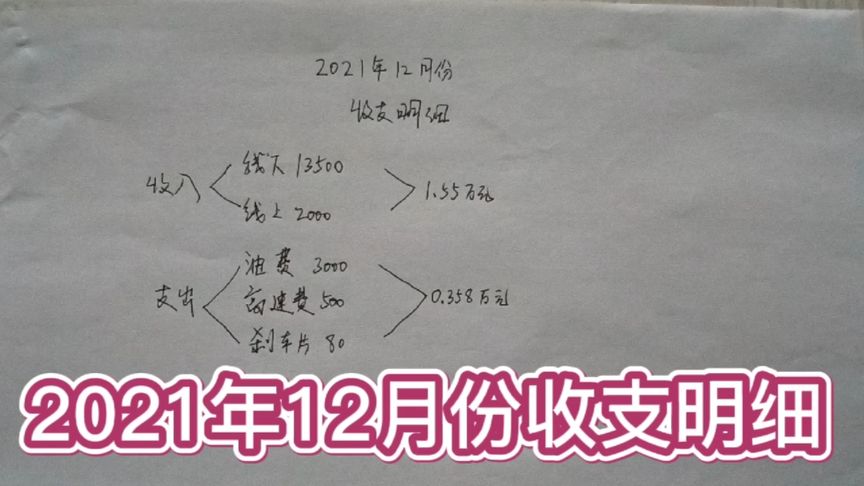 2021年12月份
收支明细
收入
线下 13500
线上 2000
1.55万元
支出
油费 3000
高速费 500
刹车片 80
0.358万元
2021年12月份收支明细